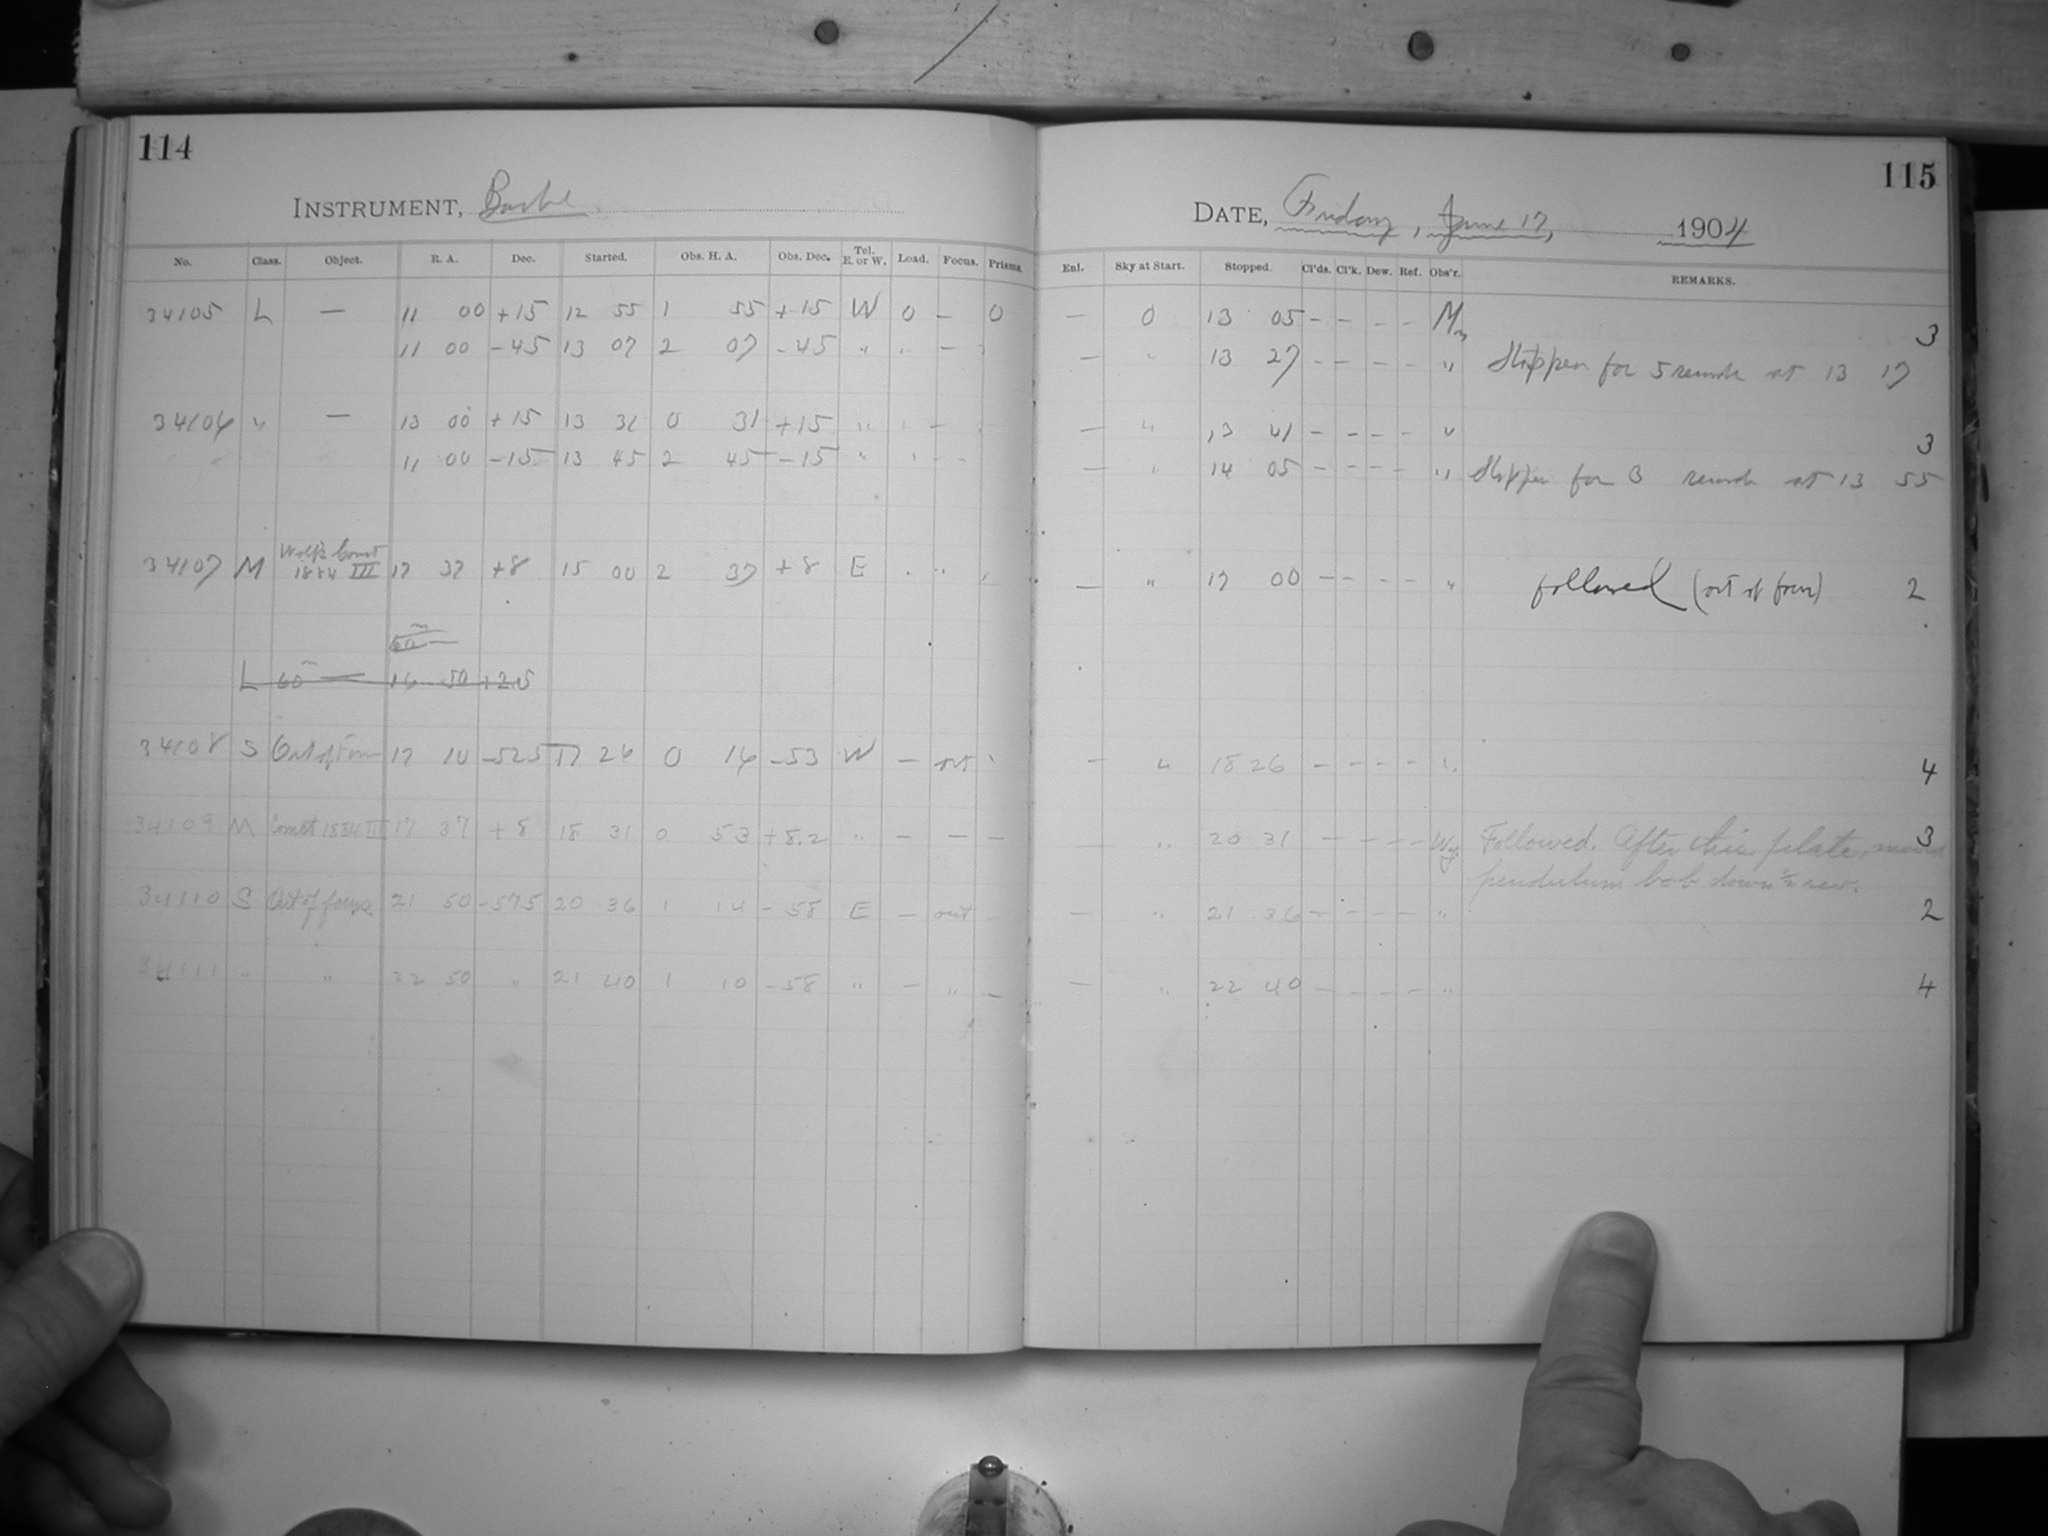 114
115
INSTRUMENT, Bache
DATE, Friday, June 17, 1904
No. Class. Object. R. A. Dec. Started. Obs. H. A. Obs. Dec. Tel. E. or W. Load. Focus. Prisms. Enl. Sky at Start. Stopped. Cl'ds. Cl'k. Dew. Ref. Obs'r. REMARKS.
34105 L — 11 00 +15 12 55 1 55 +15 W 0 – 0 — 0 13 05 – – – – 3
11 00 –45 13 07 2 07 –45 " " – — " 13 27 – – – – " Stopped for 5 seconds at 13 17
34106 " — 13 00 +15 13 31 0 31 +15 " " – — " 13 41 – – – – " 3
11 00 –15 13 45 2 45 –15 " " – — " 14 05 – – – – " Stopped for 3 seconds at 13 55
34107 M Wolf's Comet 1884 III 17 37 +8 15 00 2 37 +8 E " " — " 17 00 – – – – " followed (out of focus) 2
L 60m — 16 50 +25
34108 S Out of Focus 17 10 –52.5 17 26 0 16 –53 W – out " — " 18 26 – – – – " 4
34109 M Comet 1884 III 17 37 +8 18 31 0 53 +8.2 " – – – — " 20 31 – – – – Followed. After this plate, moved 3
pendulum bob down ½ rev.
34110 S Out of focus 21 50 –57.5 20 36 1 14 –58 E – out – — " 21 36 – – – – " 2
34111 " " 22 50 " 21 40 1 10 –58 " – " – — " 22 40 – – – – " 4